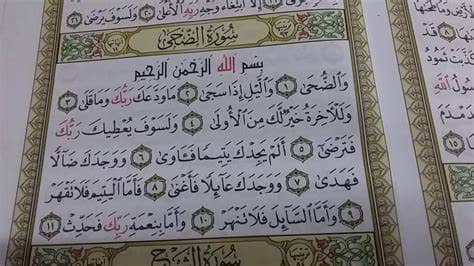 إلا ابتغاء وجه ربه الأعلى ۝٢٠ ولسوف يرضى ۝٢١
سُورَةُ الضُّحَى
بِسْمِ اللَّهِ الرَّحْمَنِ الرَّحِيمِ
وَالضُّحَى ۝١ وَاللَّيْلِ إِذَا سَجَى ۝٢ مَا وَدَّعَكَ رَبُّكَ وَمَا قَلَى ۝٣
وَلَلْآخِرَةُ خَيْرٌ لَكَ مِنَ الْأُولَى ۝٤ وَلَسَوْفَ يُعْطِيكَ رَبُّكَ
فَتَرْضَى ۝٥ أَلَمْ يَجِدْكَ يَتِيمًا فَآوَى ۝٦ وَوَجَدَكَ ضَالًّا
فَهَدَى ۝٧ وَوَجَدَكَ عَائِلًا فَأَغْنَى ۝٨ فَأَمَّا الْيَتِيمَ فَلَا تَقْهَرْ
۝٩ وَأَمَّا السَّائِلَ فَلَا تَنْهَرْ ۝١٠ وَأَمَّا بِنِعْمَةِ رَبِّكَ فَحَدِّثْ ۝١١
سُورَةُ الشَّرْحِ